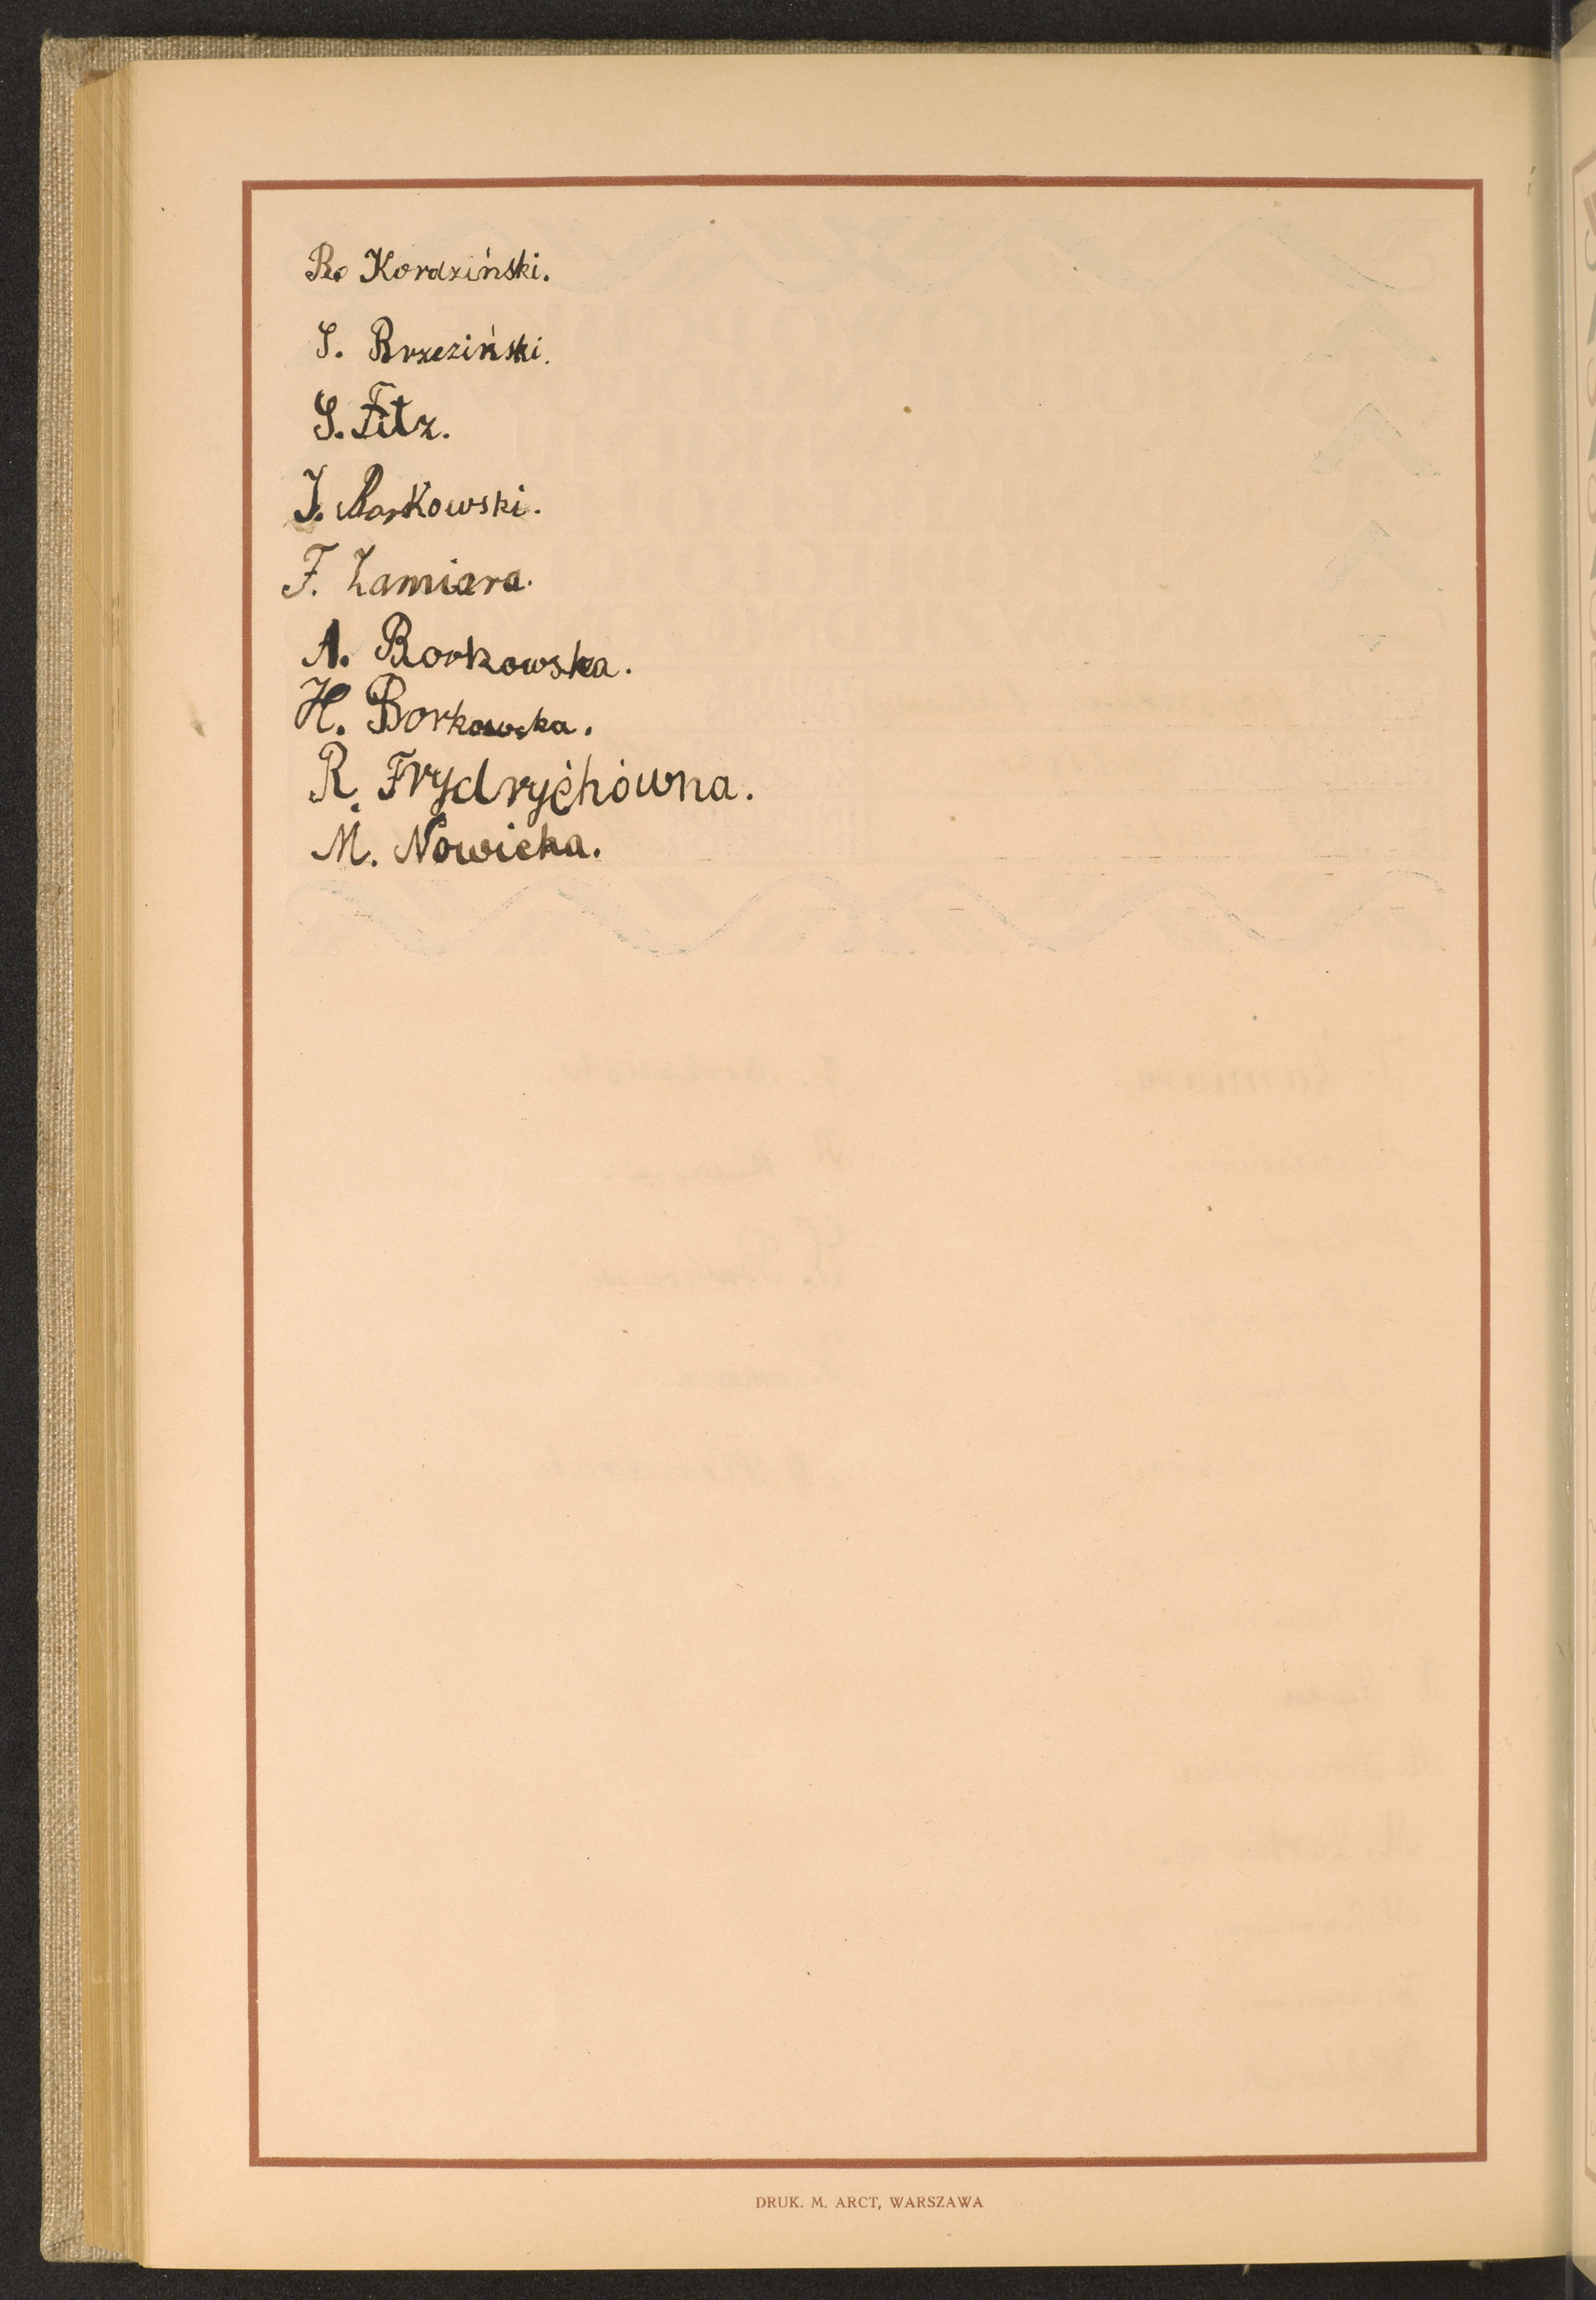 R. Kordziński.
S. Brzeziński.
S. Fitz.
J. Borkowski.
F. Zamiara.
A. Borkowska.
H. Borkowska.
R. Frydrychówna.
M. Nowicka.
DRUK. M. ARCT, WARSZAWA